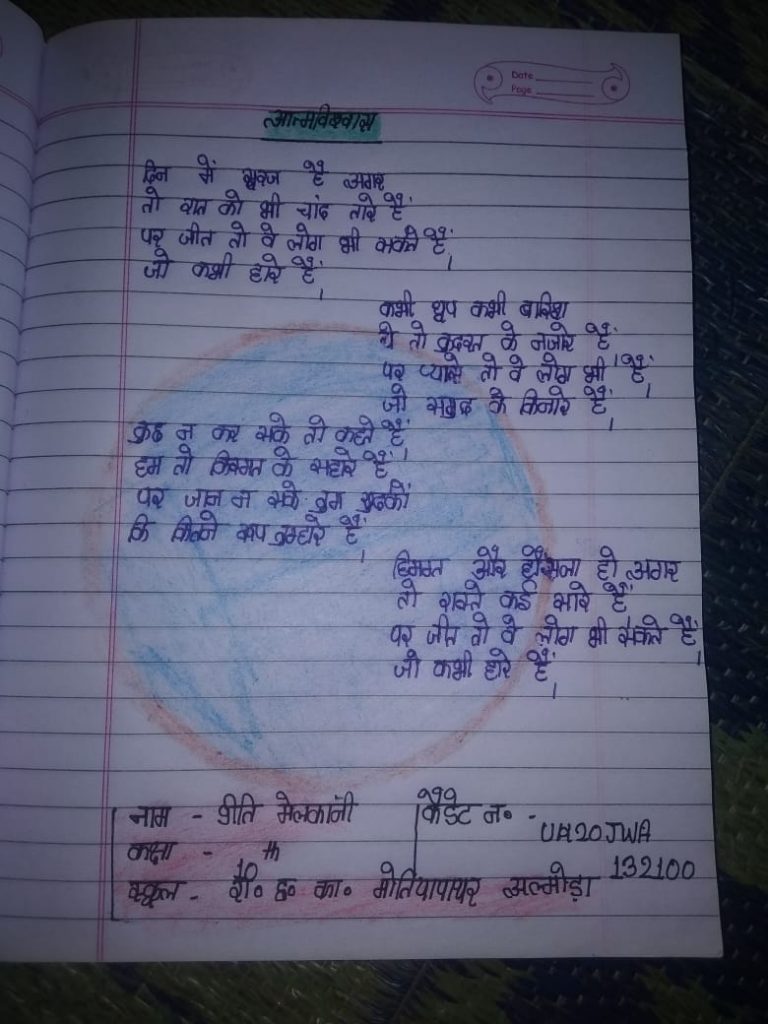 Date
Page
आत्मविश्वास
दिन में सूरज है अगर
तो रात को भी चांद तारे हैं
पर जीत तो वे लोग भी सकते हैं।
जो कभी हारे हैं।
कभी धूप कभी बारिश
ये तो कुदरत के नजारे हैं
पर प्यासे तो वे लोग भी हैं।
जो समुद्र के किनारे हैं।
कुछ न कर सके तो कहते हैं।
हम तो किस्मत के सहारे हैं
पर जान न सके तुम खुदकी
कि कितने रूप तुम्हारे हैं।
हिम्मत और हौसला हो अगर
तो रास्ते कई सारे हैं
पर जीत तो वे लोग भी सकते हैं।
जो कभी हारे हैं।
नाम - प्रीति मेलकानी
कैडेट न० -
UA20JWA
132100
कक्षा - th
स्कूल - रा० इ० का० मोतियापाथर अल्मोड़ा